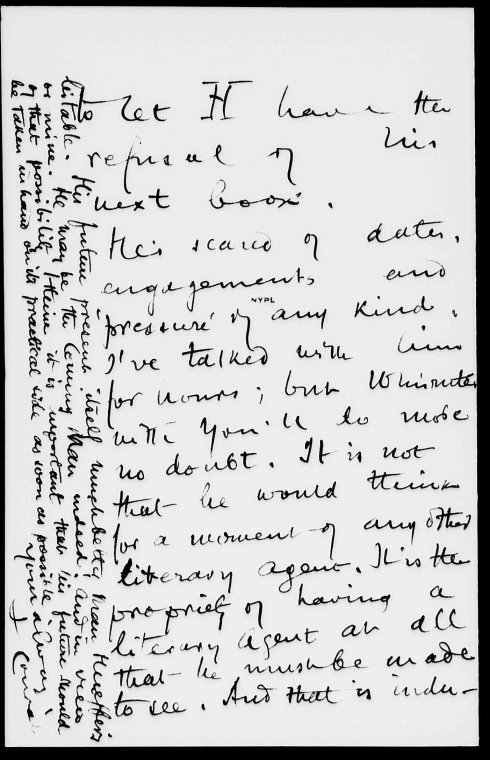 to let H have the
refusal of his
next book.
He's scared of dates,
engagements and
NYPL
pressure of any kind.
I've talked with him
for hours; but 10 minutes
with you'll do more
no doubt. It is not
that he would think
for a moment of any other
literary agent. It is the
propriety of having a
literary agent at all
that he must be made
to see. And that is indu-
bitable. His future presents itself much better than Hueffer's
or mine. He may be the Coming Man indeed. And in view
of that possibility I think it is important that his future should
be taken in hand on its practical side as soon as possible.
Yours always
J Conrad